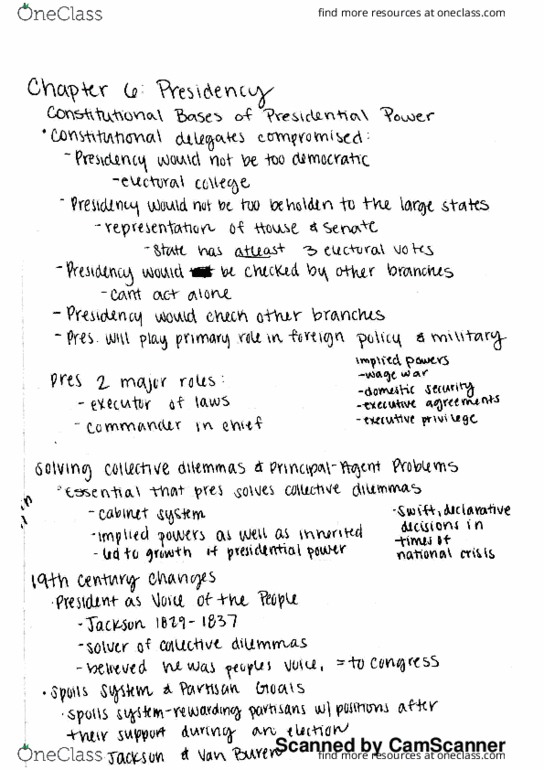 OneClass
find more resources at oneclass.com
Chapter 6: Presidency
Constitutional Bases of Presidential Power
• Constitutional delegates compromised:
- Presidency would not be too democratic
- electural college
- Presidency would not be too beholden to the large states
- representation of House & Senate
- State has atleast 3 electural votes
- Presidency would be checked by other branches
- cant act alone
- Presidency would check other branches
- Pres. will play primary role in foreign policy & military
implied powers
- wage war
- domestic security
- executive agreements
- executive privilege
Pres 2 major roles:
- executor of laws
- commander in chief
Solving collective dilemmas & Principal-Agent Problems
• Essential that pres solves collective dilemmas
- cabinet system
- implied powers as well as inherited
- led to growth of presidential power
- Swift, declarative
decisions in
times of
national crisis
19th century changes
• President as Voice of the People
- Jackson 1829-1837
- solver of collective dilemmas
- believed he was peoples voice, = to congress
• Spoils System & Partisan Goals
• spoils system - rewarding partisans w/ positions after
their support during an election
Jackson & Van Buren
Scanned by CamScanner
OneClass
find more resources at oneclass.com